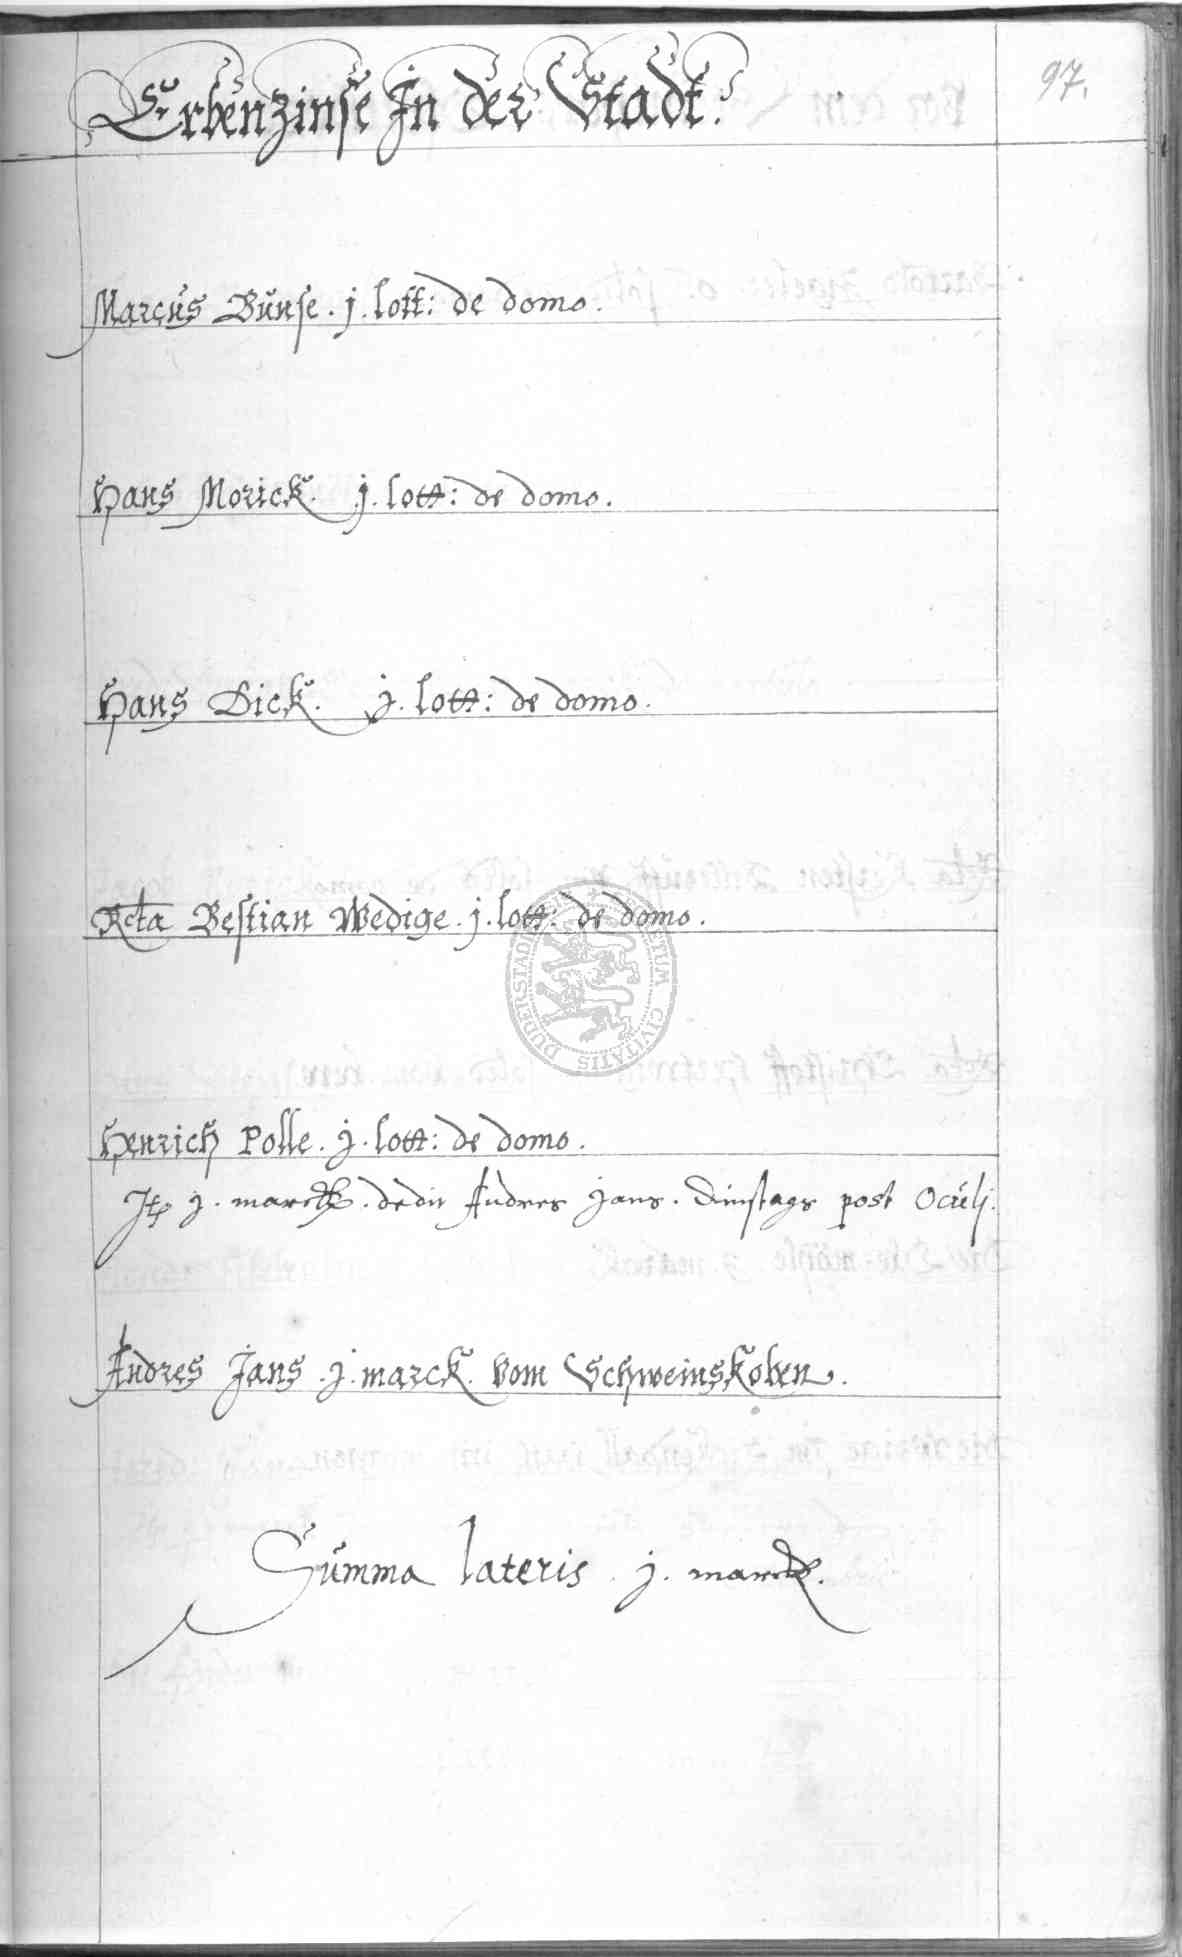 97.
Erbenzinse In der Stadt.
Marcus Bunse . j . lott: de domo .
Hans Morick . j . lott: de domo .
Hans Dick . j . lott: de domo .
Rcta Bestian Wedige . j . lott: de domo .
DUDERSTADENSIS SECRETUM CIVITATIS
Henrich Polle . j . lott: de domo .
Itz j . marck . dedit Andres Jans . Dinstags post Oculj .
Andres Jans . j . marck . vom Schweinskoben .
Summa lateris . j . marck .